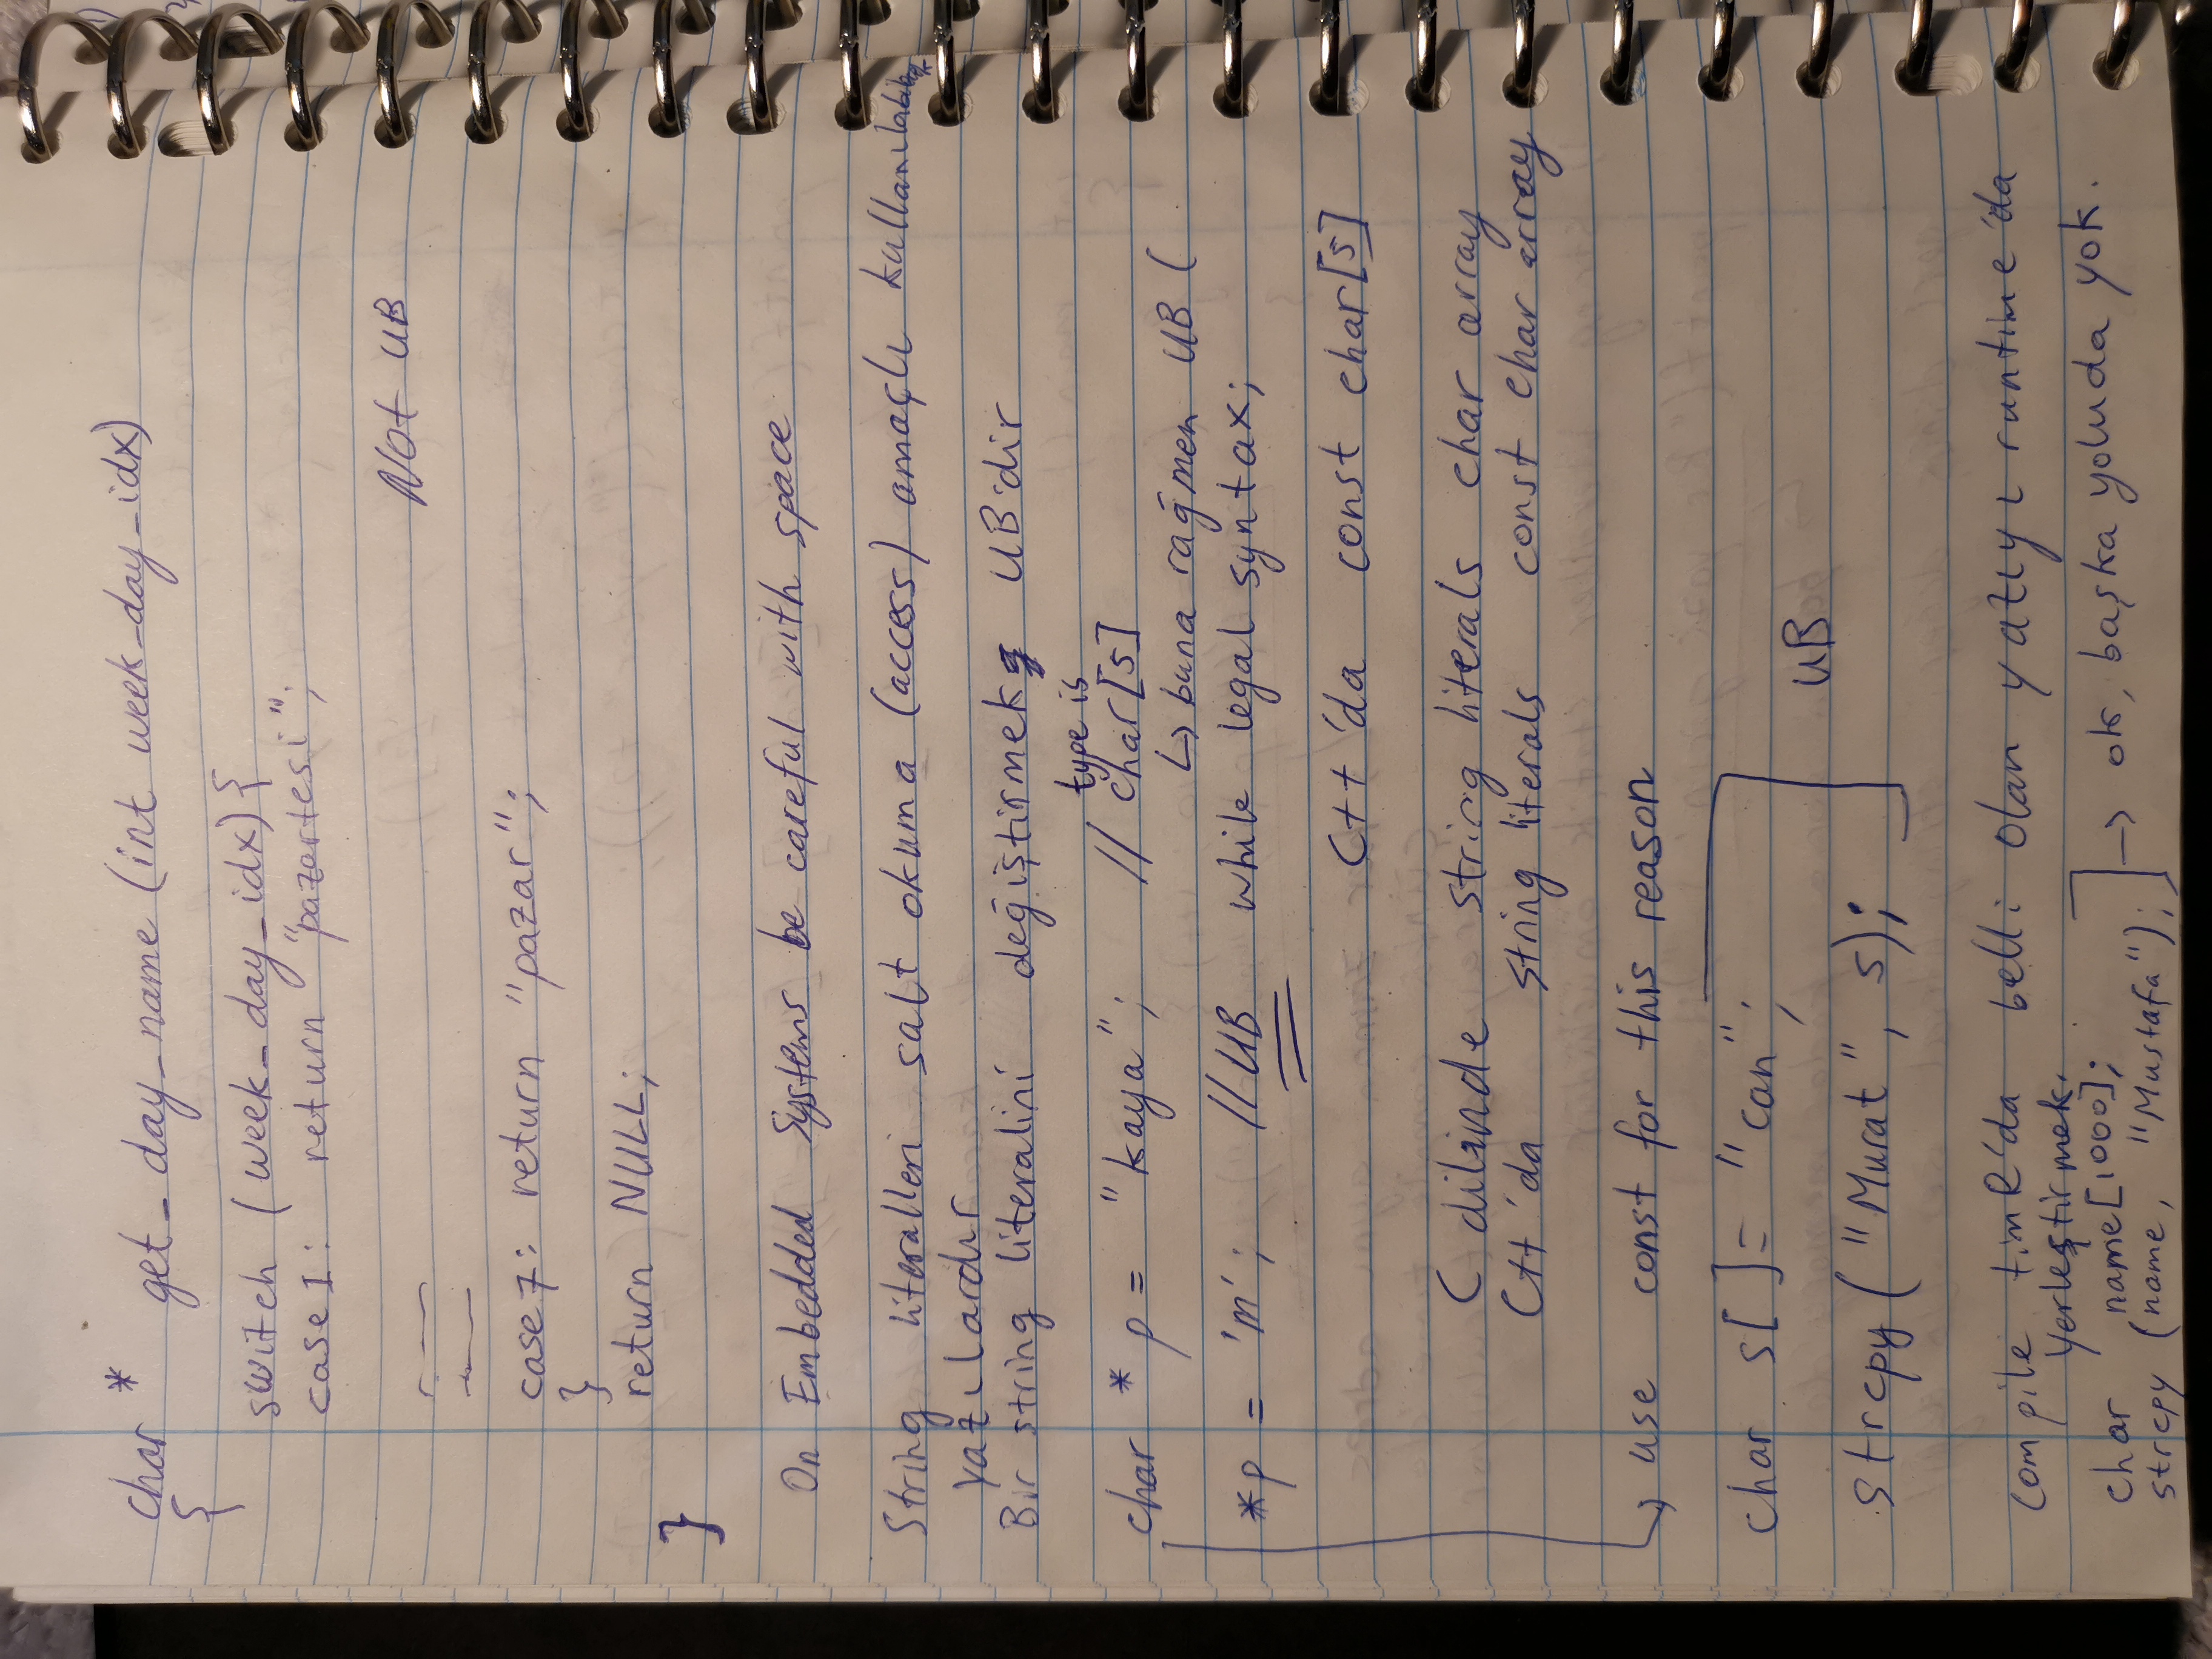 char * get_day_name (int week_day_idx)
{
switch (week_day_idx) {
case 1: return "pazartesi";
Not UB
case 7: return "pazar";
}
return NULL;
}
On Embedded Systems be careful with space
String literalleri salt okuma (access) amaçlı kullanılabilecek
yazılardır
Bir string literalini değiştirmek UB'dir
type is
char * p = "kaya"; // char[5]
↳ buna rağmen UB (
*p = 'm'; // UB while legal syntax;
C++'da const char[5]
C dilinde string literals char array
C++'da string literals const char array
↳ use const for this reason
char s[ ] = "can";
UB
strcpy ("Murat", s);
compile time'da belli olan yazıyı runtime'da
yerleştirmek.
char name[1000];
→ ok, başka yoluda yok.
strcpy (name, "Mustafa");